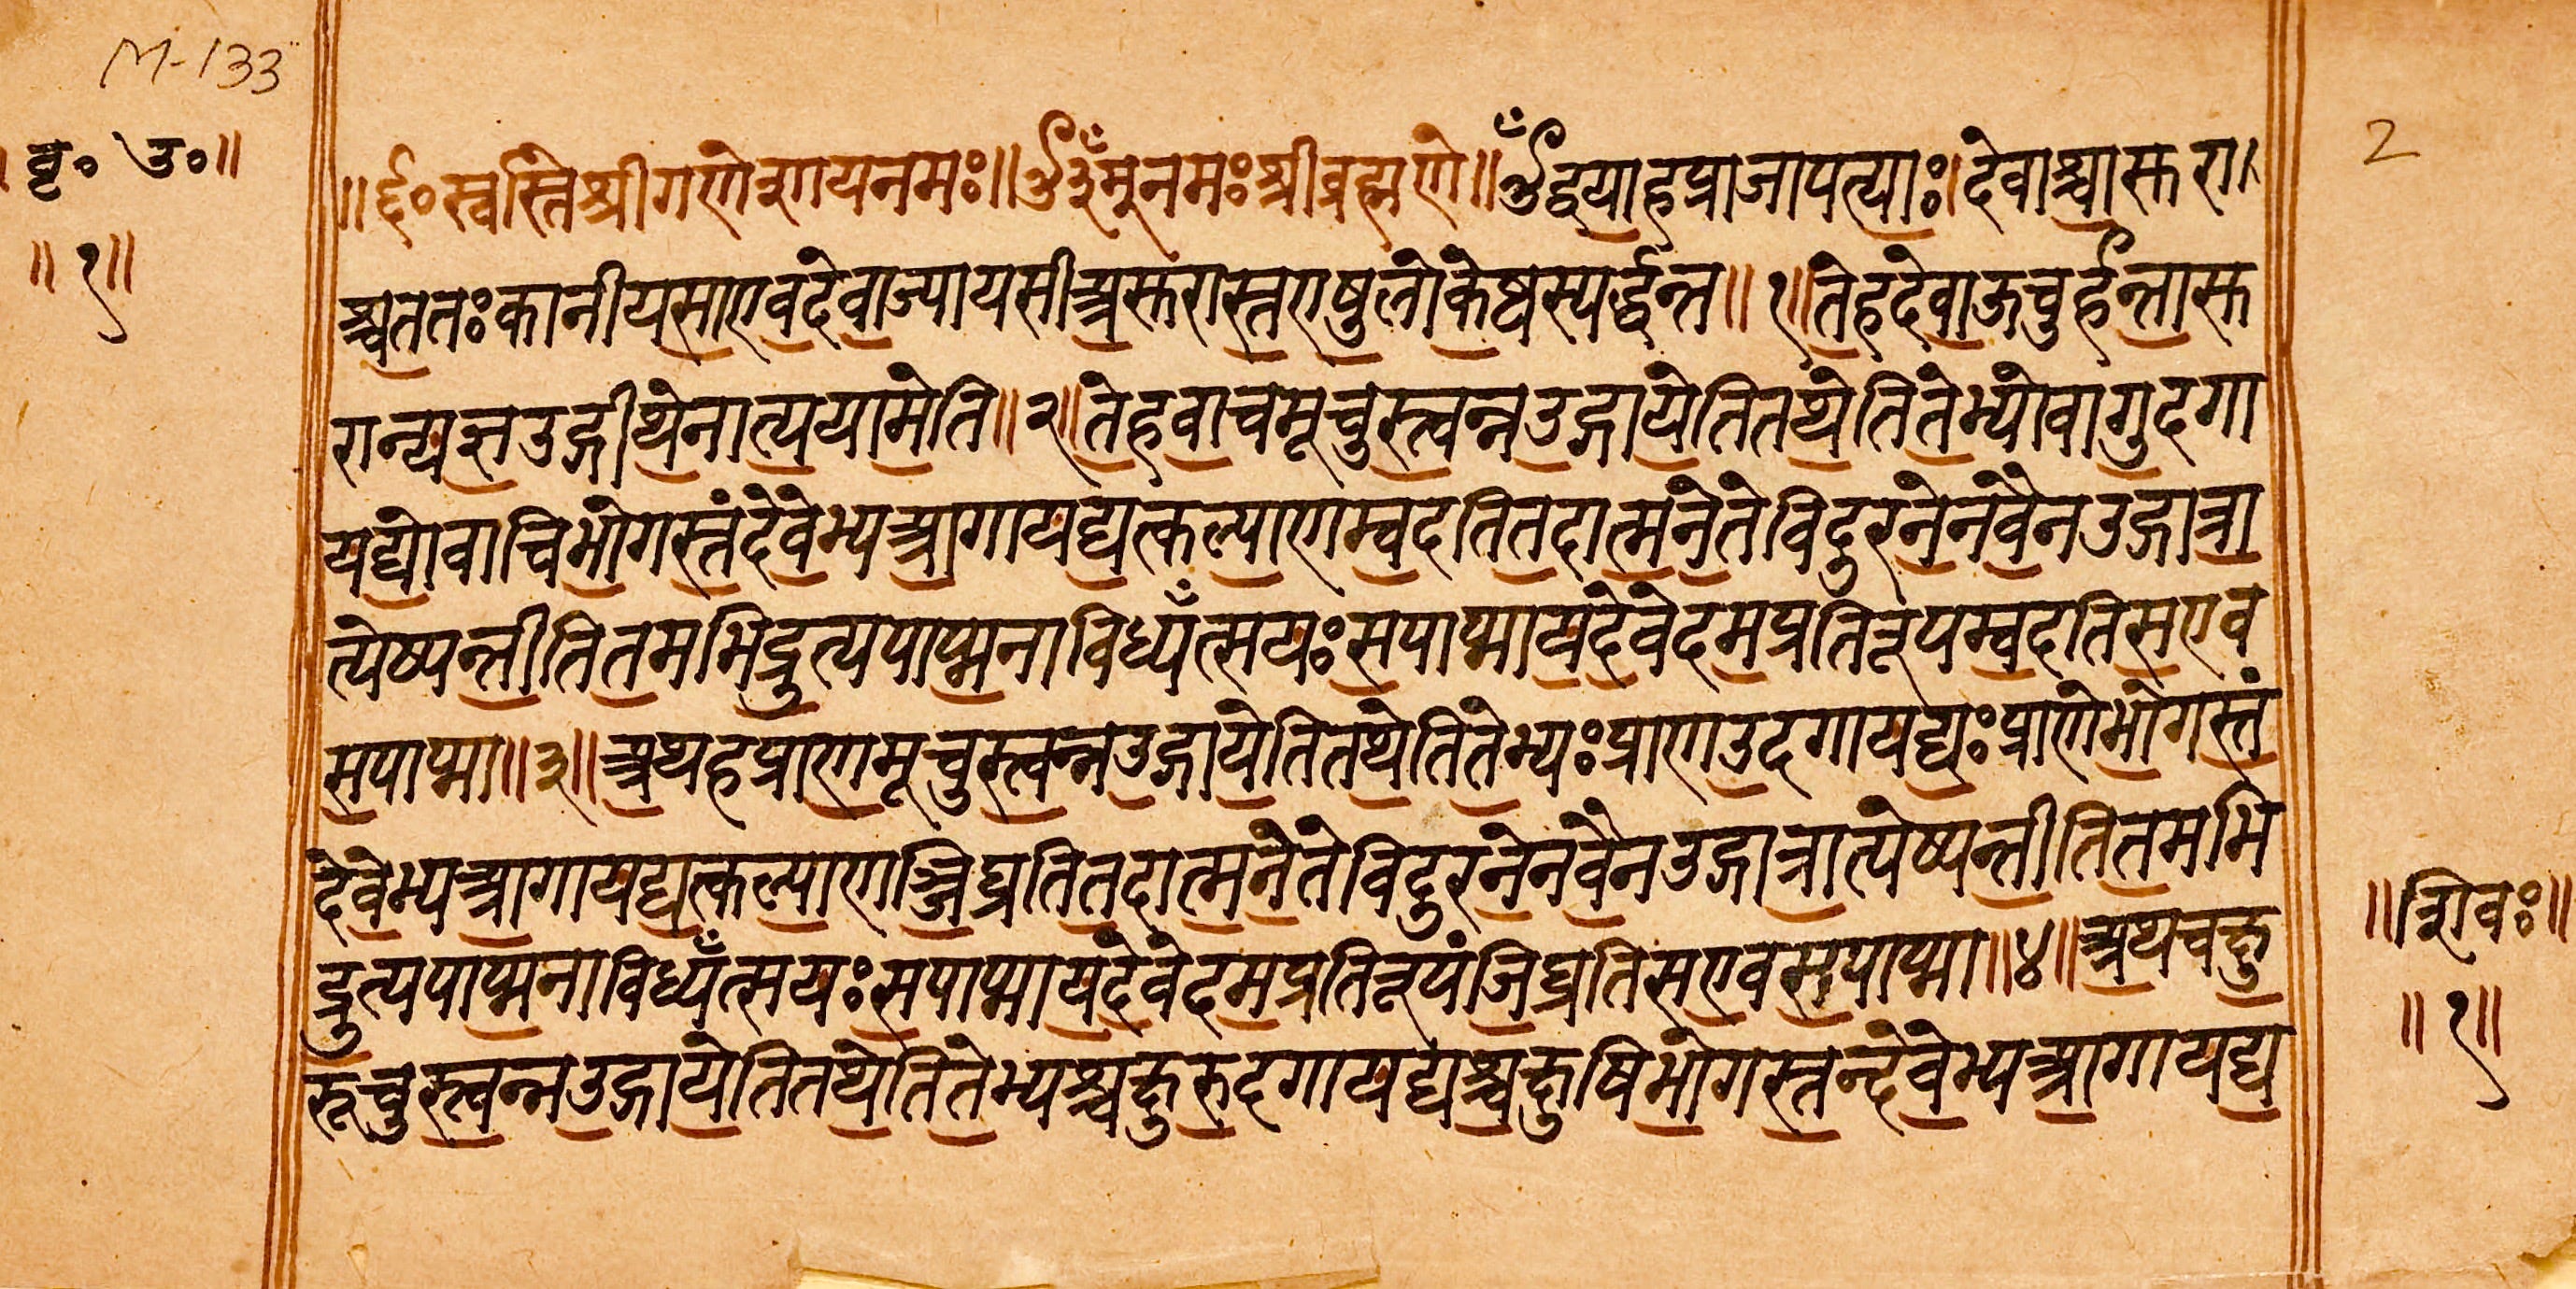 M-133
। बृ॰ उ॰॥
॥ १॥
2
॥र्द्द॰स्वस्तिश्रीगणेशायनमः॥ॐ३ँम्नमःश्रीब्रह्मणे॥ँद्वयाहप्राजापत्याः।देवाश्चासुरा।
श्चततःकानीयसाएवदेवाज्यायसाअसुरास्तएषुलोकेष्वस्पर्द्धन्त॥ १॥तेहदेवाऊचुर्हन्तासु
रान्यज्ञउद्गीथेनात्ययामेति॥२॥तेहवाचमूचुस्त्वन्नउद्गायेतितथेतितेभ्योवागुदगा
यद्योवाचिभोगस्तंदेवेभ्यआगायद्यत्कल्याणम्वदतितदात्मनेतेविदुरनेनवैनउद्गात्रा
त्येष्यन्तीतितमभिद्रुत्यपाप्मनाविध्यँत्सयःसपाप्मायदेवेदमप्रतिरूपम्वदतिसएव
सपाप्मा॥३॥अथहप्राणमूचुस्त्वन्नउद्गायेतितथेतितेभ्यःप्राणउदगायद्यःप्राणेभोगस्तं
देवेभ्यआगायद्यत्कल्याणञ्जिघ्रतितदात्मनेतेविदुरनेनवैनउद्गात्रात्येष्यन्तीतितमभि
द्रुत्यपाप्मनाविध्यँत्सयःसपाप्मायदेवेदमप्रतिरूपंजिघ्रतिसएवसपाप्मा॥४॥अथचक्षु
रूचुस्त्वन्नउद्गायेतितथेतितेभ्यश्चक्षुरुदगायद्यश्चक्षुषिभोगस्तन्देवेभ्यआगायद्य
॥शिवः॥
॥ १॥